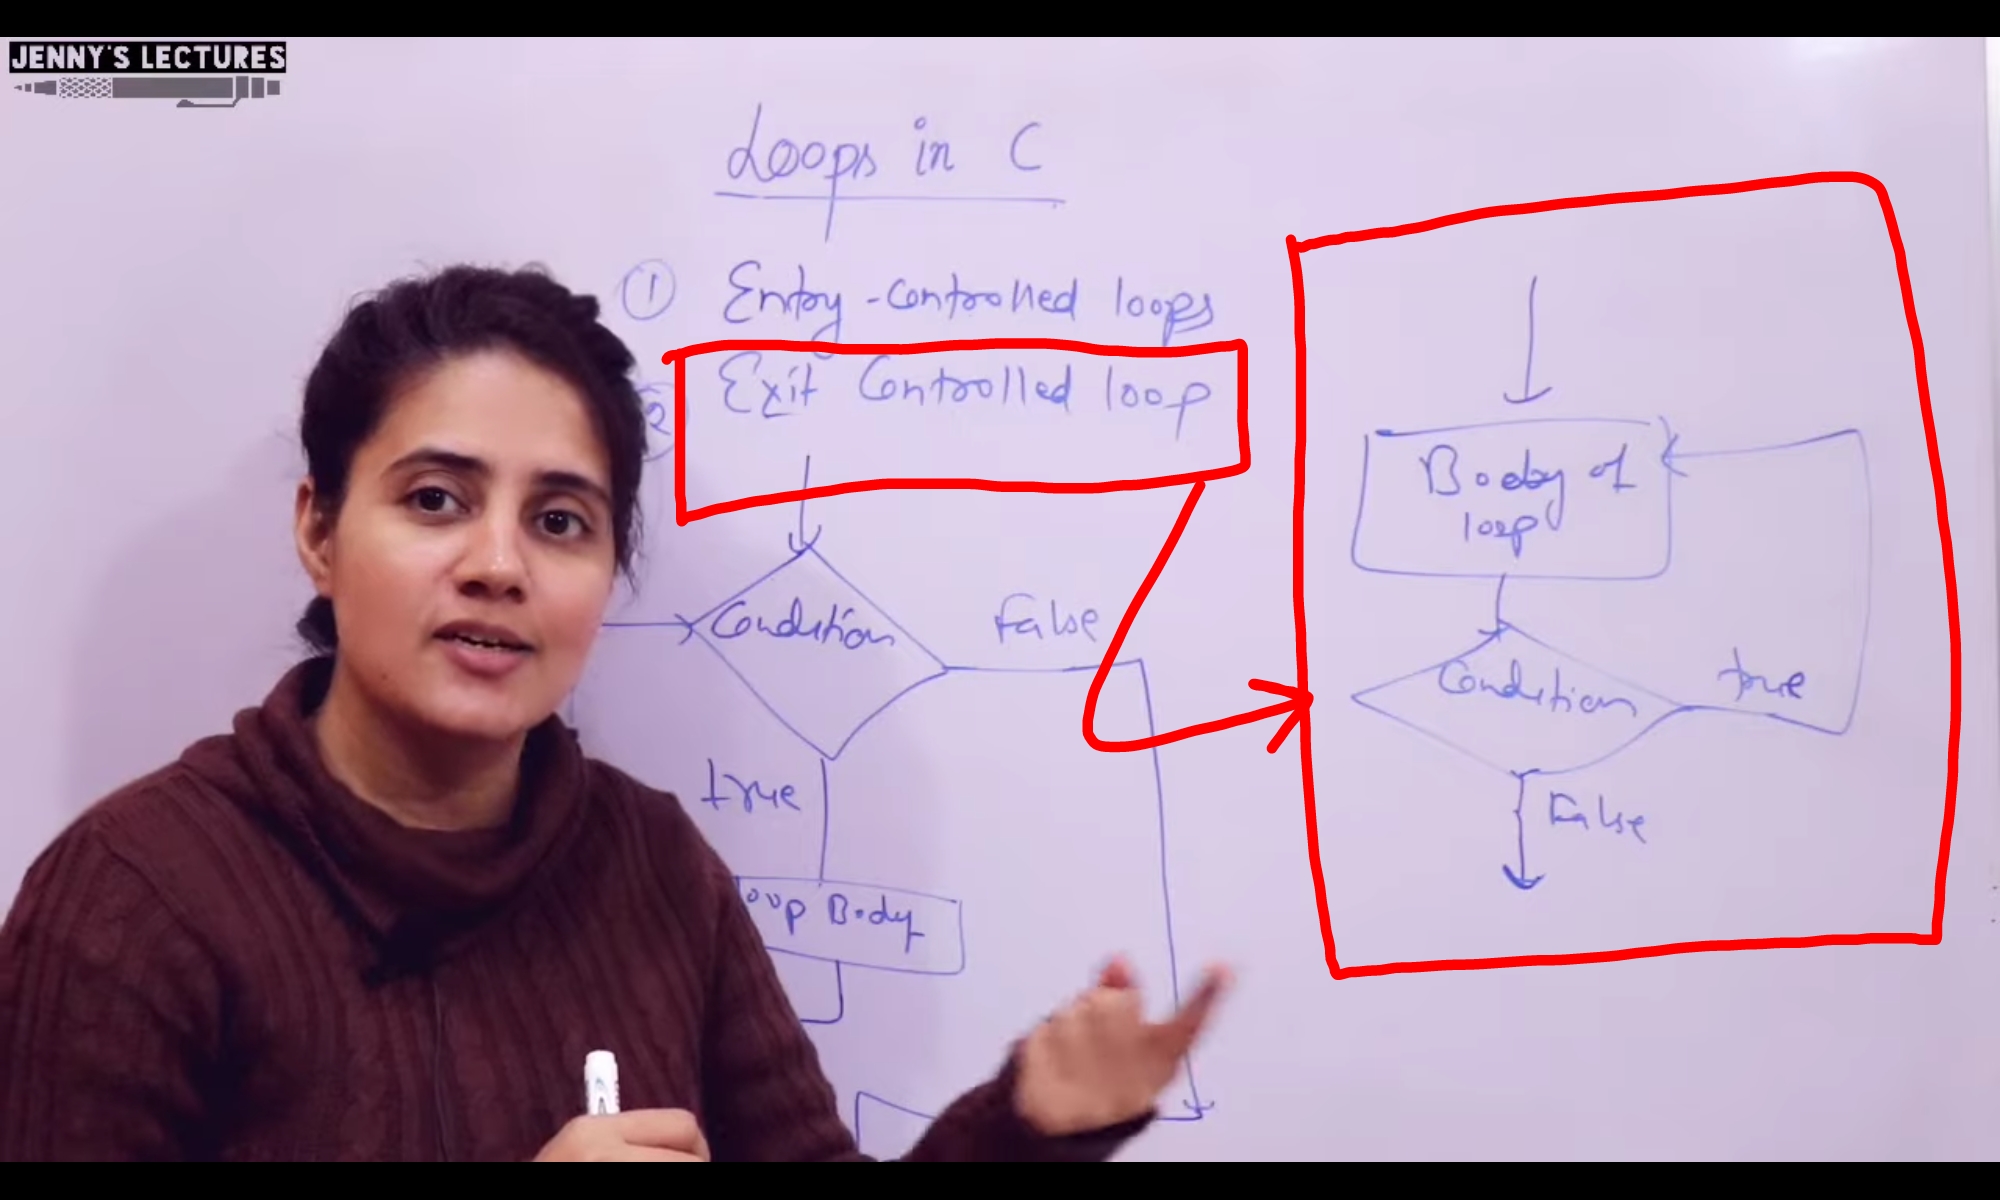 JENNY'S LECTURES
Loops in C
① Entry-controlled loops
② Exit Controlled loop
Condition
False
true
Loop Body
Body of
loop
Condition
true
False